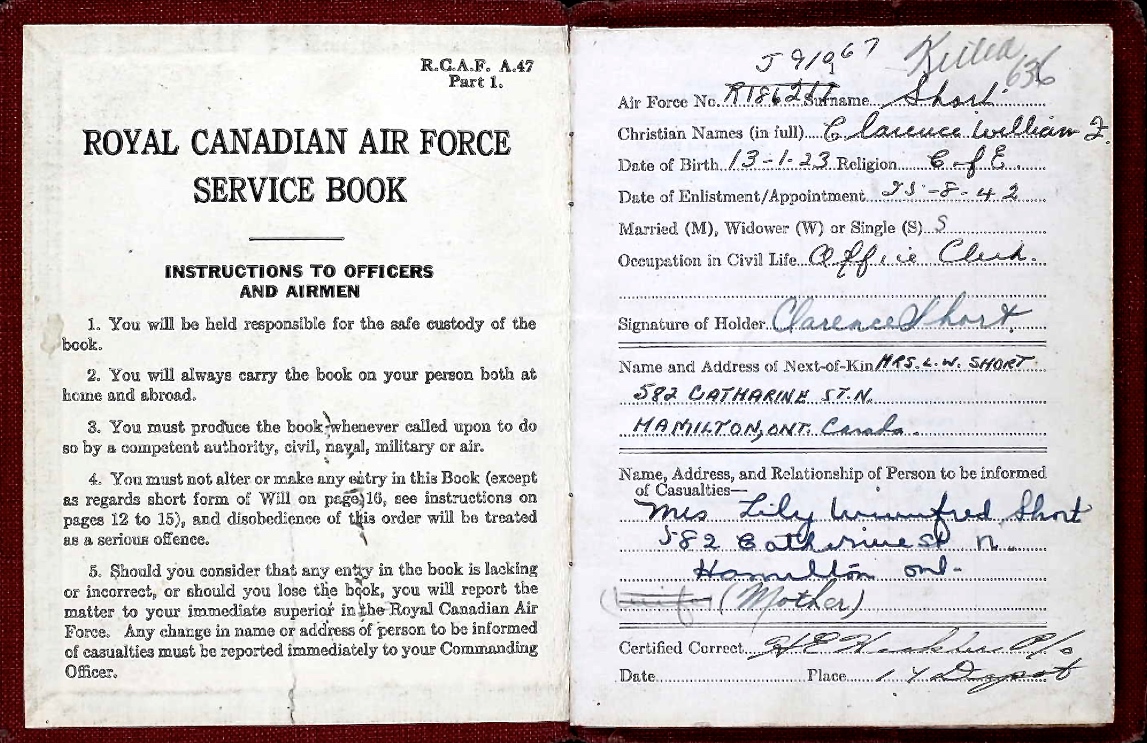 R.C.A.F. A.47
Part 1.
ROYAL CANADIAN AIR FORCE
SERVICE BOOK
INSTRUCTIONS TO OFFICERS
AND AIRMEN
1. You will be held responsible for the safe custody of the
book.
2. You will always carry the book on your person both at
home and abroad.
3. You must produce the book whenever called upon to do
so by a competent authority, civil, naval, military or air.
4. You must not alter or make any entry in this Book (except
as regards short form of Will on page 16, see instructions on
pages 12 to 15), and disobedience of this order will be treated
as a serious offence.
5. Should you consider that any entry in the book is lacking
or incorrect, or should you lose the book, you will report the
matter to your immediate superior in the Royal Canadian Air
Force. Any change in name or address of person to be informed
of casualties must be reported immediately to your Commanding
Officer.
J 91967 Killed
636
Air Force No. Surname Short
Christian Names (in full) Clarence William F.
Date of Birth 13-1-23 Religion C of E.
Date of Enlistment/Appointment -8-42
Married (M), Widower (W) or Single (S) S
Occupation in Civil Life Office Clerk.
Signature of Holder Clarence Short.
Name and Address of Next-of-Kin MRS. L. W. SHORT
582 CATHARINE ST. N.
HAMILTON, ONT. Canada.
Name, Address, and Relationship of Person to be informed
of Casualties—
Mrs Lily Winnifred Short
582 Catharine St N.
Hamilton Ont.
(Mother)
Certified Correct
Date Place 14 Depot